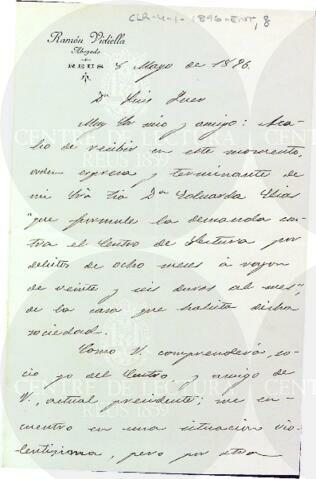 CLR-4-1-1896-ENT, 8
Ramón Vidiella
Abogado
REUS 8 Mayo de 1896.
Dn Luis Quer
Muy Sr mio y amigo: Aca-
bo de recibir en este momento,
orden expresa y terminante de
mi Sra Tia Dª Eduarda Elias
"que formule la demanda con-
tra el Centro de Lectura por
debitos de ocho meses á rayon
de veinte y seis duros al mes,
de la casa que habita dicha
sociedad.
Como V. comprenderá, so-
cio yo del Centro y amigo de
V., actual presidente; me en-
cuentro en una situacion vio-
lentisima, pero por otra
CENTRE DE LECTURA
REUS 1859